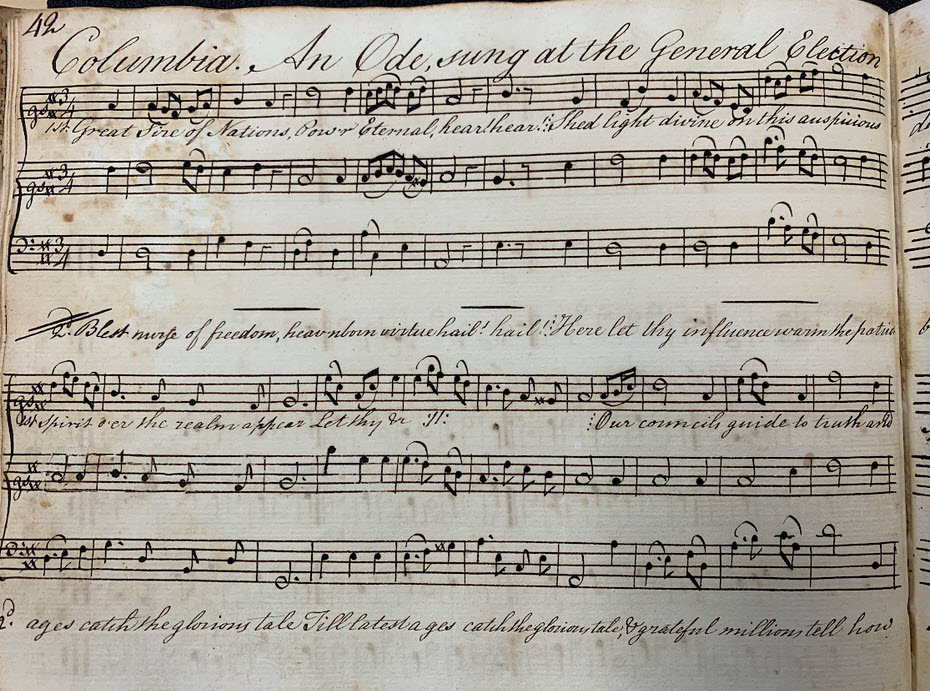 42
Columbia. An Ode, sung at the General Election
1st. Great Sire of Nations, Pow'r Eternal, hear! hear! Shed light divine on this auspicious
2d. Blest nurse of freedom, heav'nborn virtue hail! hail! Here let thy influence warm the patriot
1st spirit o'er the realm appear Let thy &c :||: Our councils guide to truth and
2d. ages catch the glorious tale Till latest ages catch the glorious tale, & grateful millions tell how